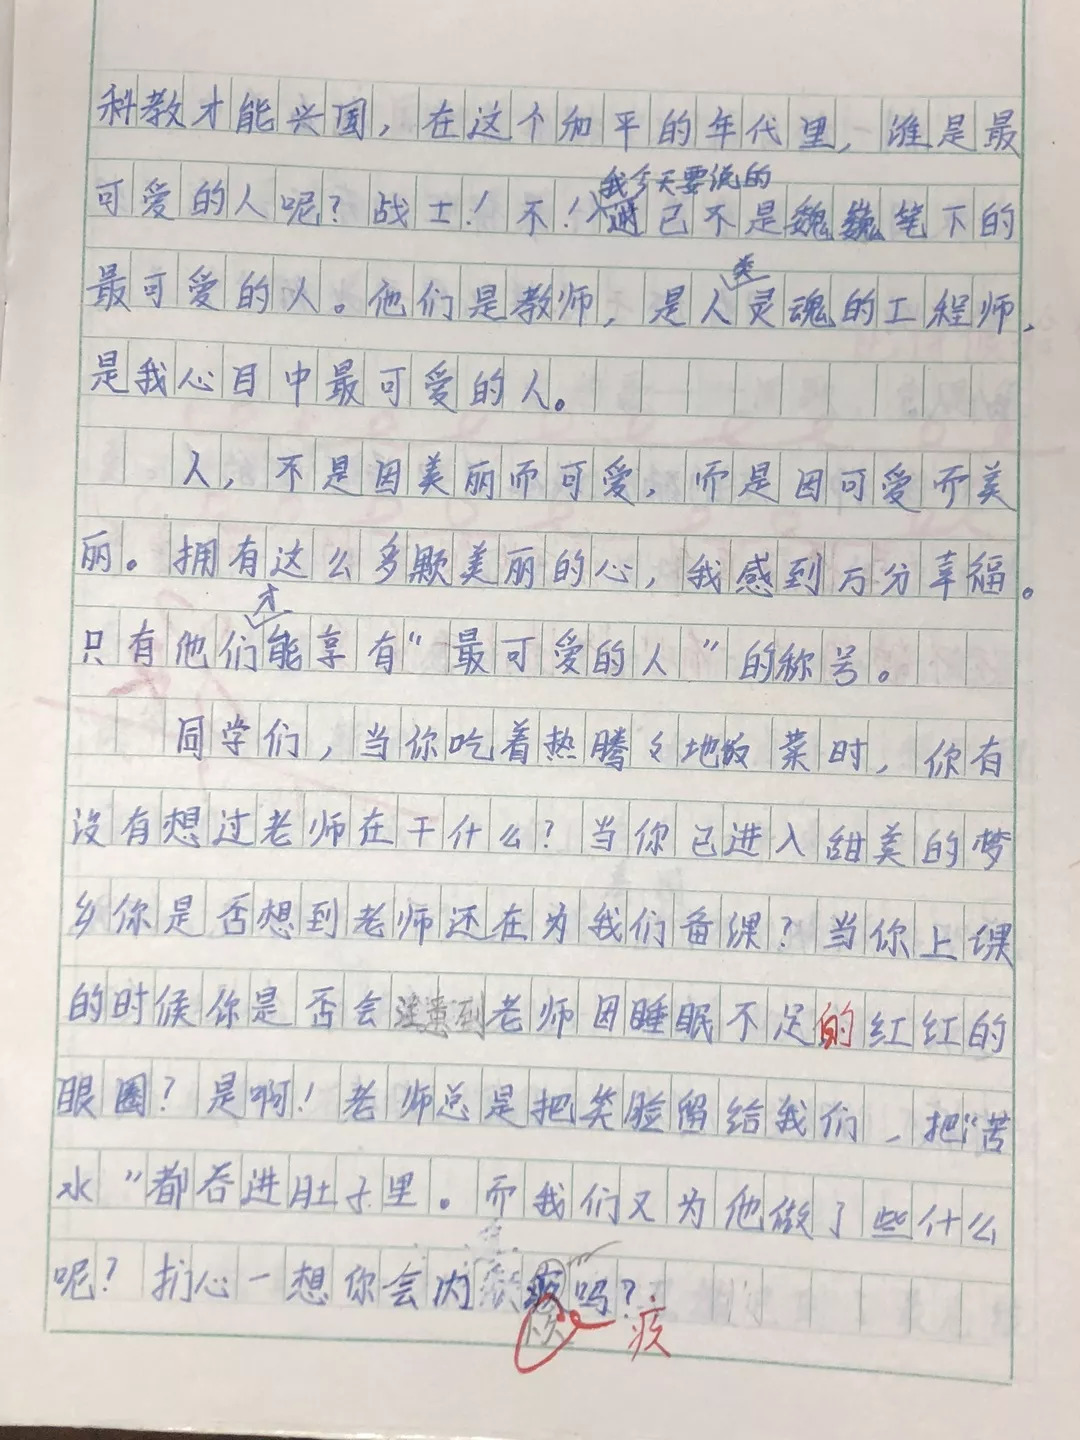 科教才能兴国，在这个和平的年代里，谁是最
我今天要说的
可爱的人呢？战士！不！已不是魏巍笔下的
类
最可爱的人。他们是教师，是人灵魂的工程师，
是我心目中最可爱的人。
人，不是因美丽而可爱，而是因可爱而美
丽。拥有这么多颗美丽的心，我感到万分幸福。
才
只有他们能享有“最可爱的人”的称号。
同学们，当你吃着热腾々地饭菜时，你有
没有想过老师在干什么？当你已进入甜美的梦
乡你是否想到老师还在为我们备课？当你上课
的时候你是否会注意到老师因睡眠不足的红红的
眼圈？是啊！老师总是把笑脸留给我们，把“苦
水”都吞进肚子里。而我们又为他做了些什么
呢？扪心一想你会内疚吗？
疚